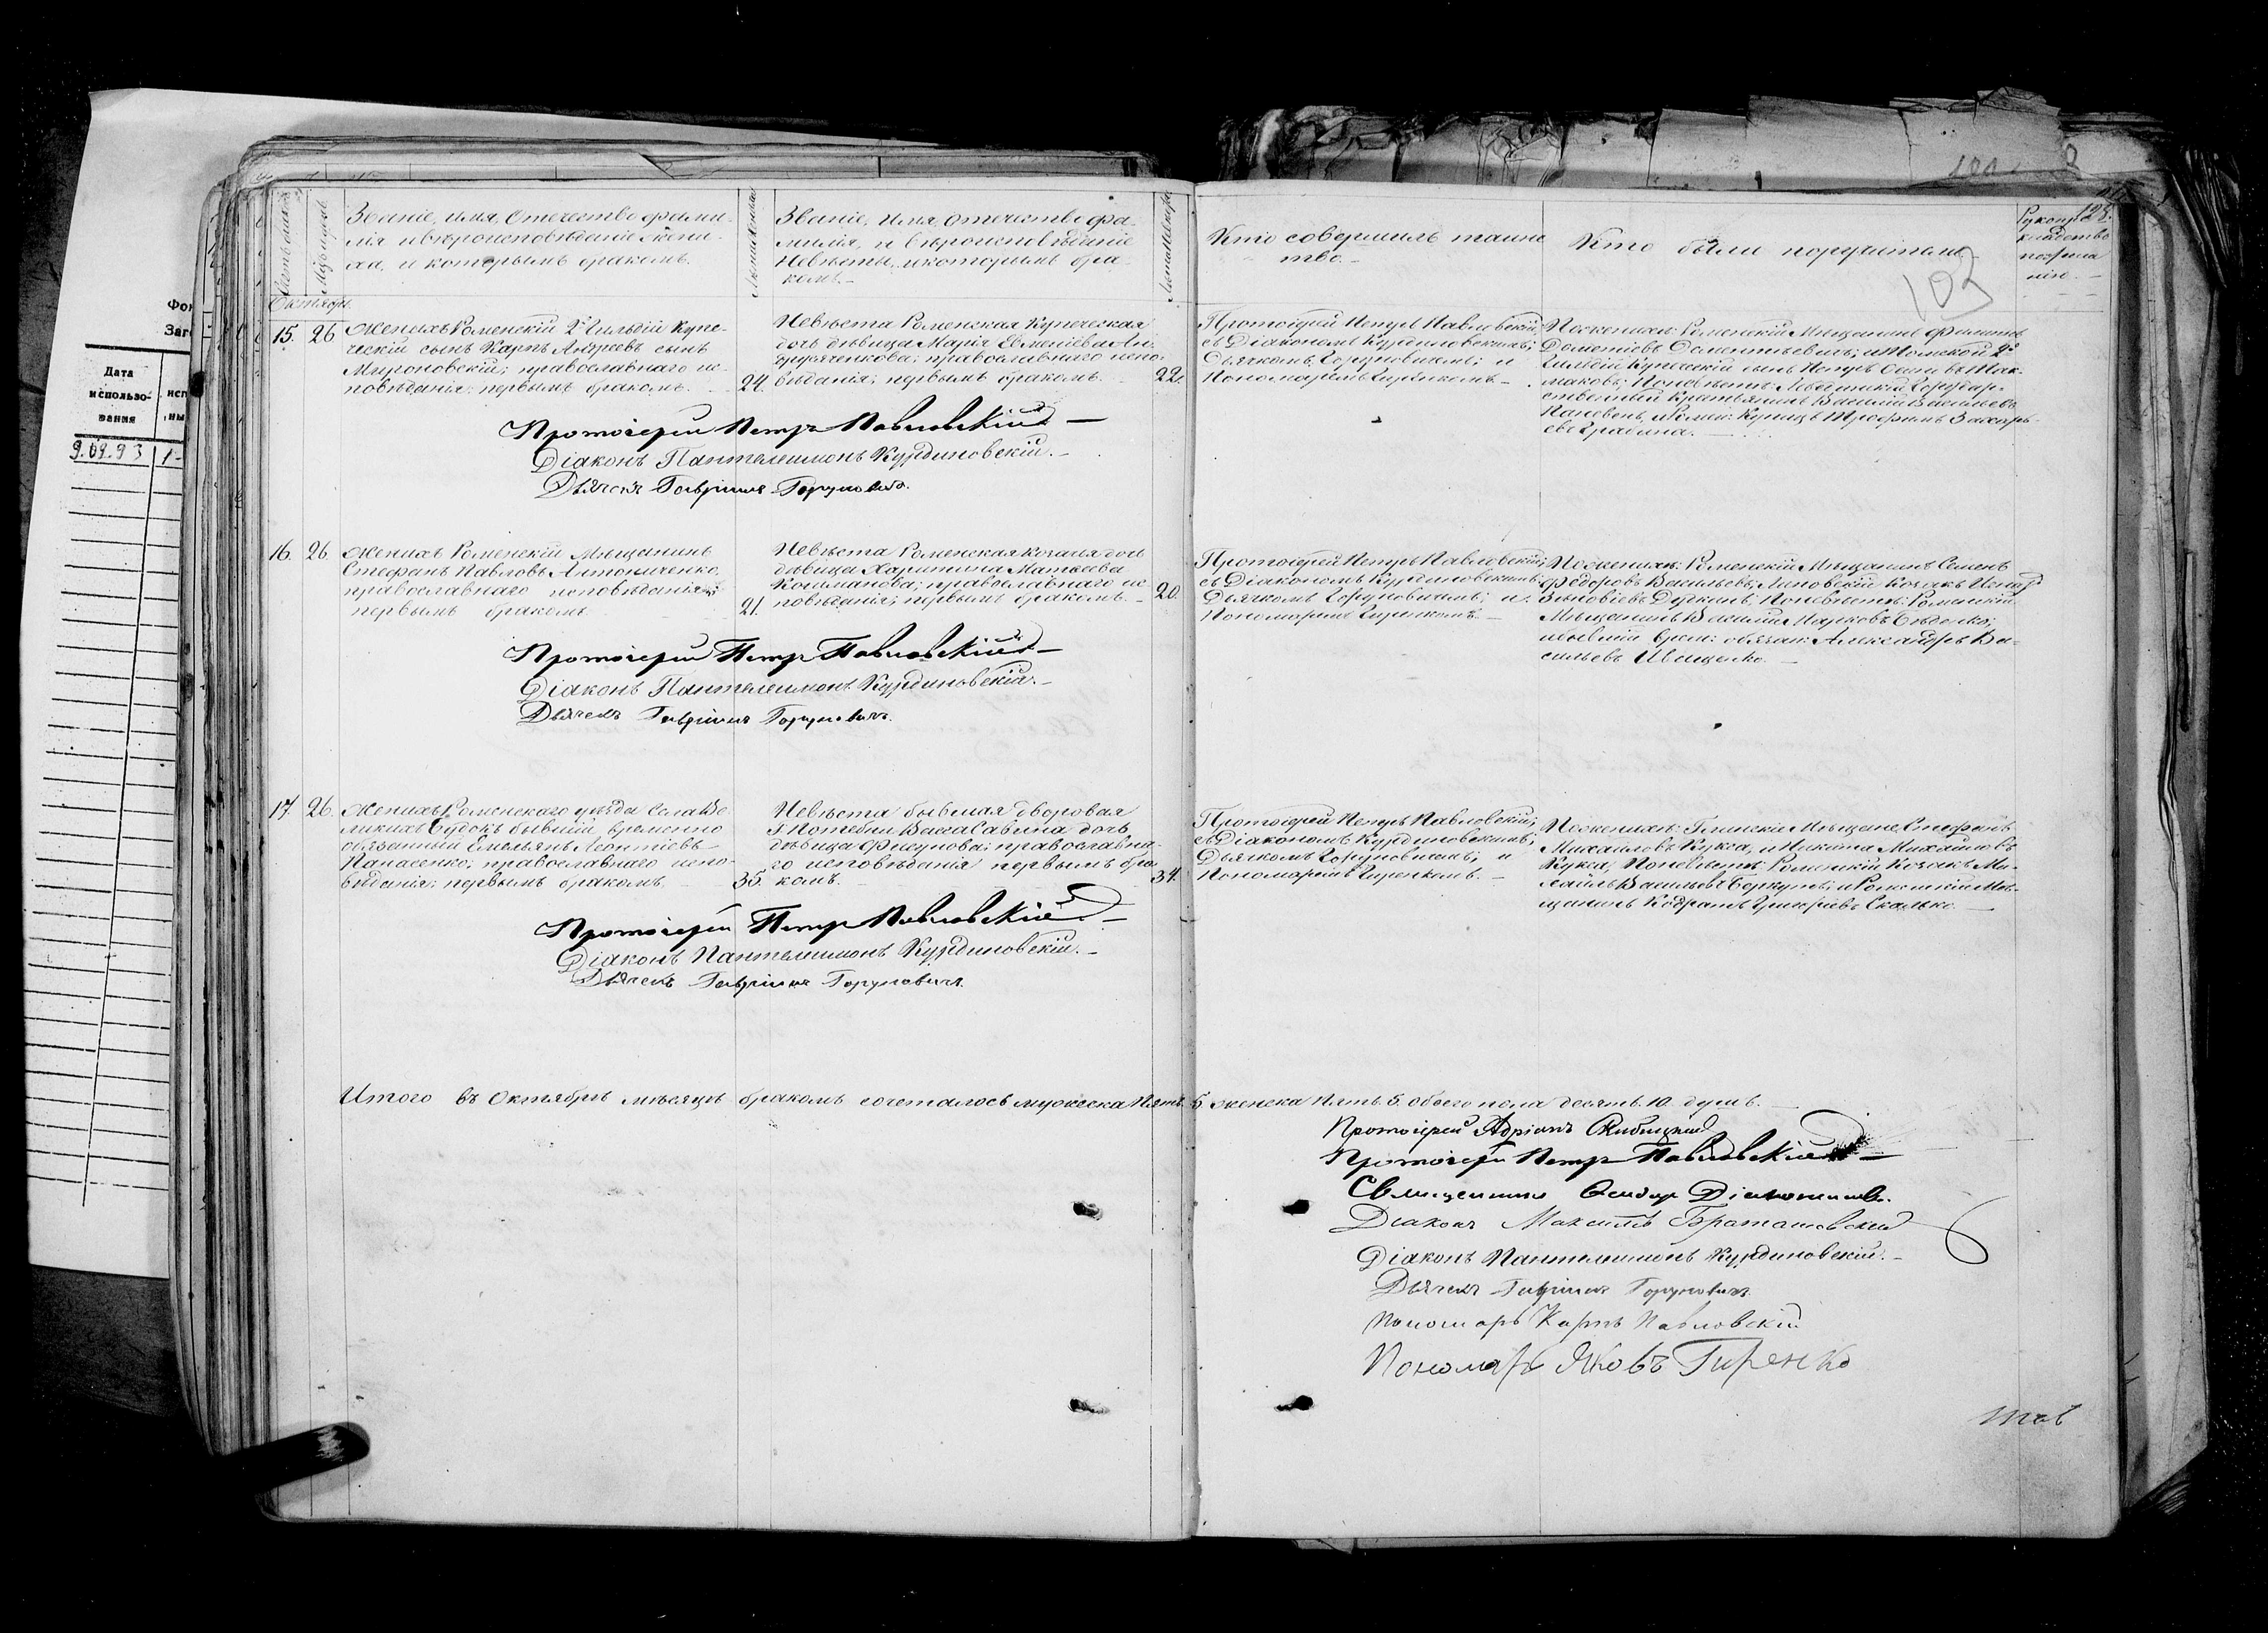 Дата
использо-
вания
9.09.93
Званіе, имя, Отечество фами-
лія и вѣроисповѣданіе Жени-
ха, и которымъ бракомъ.
Званіе, Имя, отечество фа-
милія, и вѣроисповѣданіе
Невѣсты, и которымъ бра-
комъ.
Кто совершилъ таин-
ство.
Кто были поручители
103
Октябрь
15. 26 Женихъ Роменскій 2й Гильдіи Купе-
ческій сынъ Карпъ Андреевъ сынъ
Мироновскій; православнаго ис-
повѣданія; первымъ бракомъ. 24.
Невѣста Роменская Купеческая
дочь дѣвица Марія Евменіева Ан-
друщенкова; православнаго испо-
вѣданія; первымъ бракомъ. 22.
Протоіерей Петръ Павловскій;
съ Діакономъ Курдиновскимъ;
Дьячкомъ Горуновичемъ; и
Пономаремъ Гиренкомъ.
По женихѣ: Роменскій Мѣщанинъ
Дометіевъ и 2й
Гильдіи Купеческій сынъ Петръ
По невѣстѣ:
Крестьянинъ Василій Васильевъ
Купецъ Трофимъ Захарь-
евъ
Протоіерей Петръ Павловскій
Діаконъ Пантелеимонъ Курдиновскій.
Дьячекъ Гавріилъ Горуновичъ.
16. 26 Женихъ Роменскій Мѣщанинъ
Стефанъ Павловъ Антониченко,
православнаго исповѣданія;
первымъ бракомъ 21.
Невѣста Роменская козачья дочь
дѣвица Харитина Матвеева
православнаго ис-
повѣданія; первымъ бракомъ. 20.
Протоіерей Петръ Павловскій;
съ Діакономъ Курдиновскимъ;
Дьячкомъ Горуновичемъ; и
Пономаремъ Гиренкомъ.
По женихѣ: Роменскій Мѣщанинъ Семенъ
Федоровъ Васильевъ; Козакъ
По невѣстѣ: Роменскій
Мѣщанинъ Василій Марковъ
и бывшій врем: обязан: Александръ Ва-
сильевъ Иващенко.
Протоіерей Петръ Павловскій
Діаконъ Пантелеимонъ Курдиновскій.
Дьячекъ Гавріилъ Горуновичъ.
17. 26. Женихъ Роменскаго уѣзда Села Ве-
ликихъ Будокъ бывшій временно
обязанный Емельянъ Леонтіевъ
Панасенко; православнаго испо-
вѣданія; первымъ бракомъ 35.
Невѣста бывшая дворовая
Г. Потебни Васса Савина дочь
дѣвица Фисунова; православна-
го исповѣданія первымъ бра-
комъ. 34.
Протоіерей Петръ Павловскій;
съ Діакономъ Курдиновскимъ;
Дьячкомъ Горуновичемъ; и
Пономаремъ Гиренкомъ.
По женихѣ: Глинскіе Мѣщане, Стефанъ
Михайловъ Кукса, и Никита Михайловъ
Кукса, По невѣстѣ: Роменскій Козакъ Ми-
хайлъ Васильевъ и Роменскій Мѣ-
щанинъ Кодратъ Григоріевъ Скалько.
Протоіерей Петръ Павловскій
Діаконъ Пантелеимонъ Курдиновскій.
Дьячекъ Гавріилъ Горуновичъ.
Итого въ Октябрѣ мѣсяцѣ бракомъ сочеталось мужеска Пять. 5. женска Пять. 5. обоего пола десять. 10. душъ.
Протоіерей Адріанъ
Протоіерей Петръ Павловскій
Священникъ
Діаконъ Максимъ
Діаконъ Пантелеимонъ Курдиновскій.
Дьячекъ Гавріилъ Горуновичъ.
Пономарь Карпъ Павловскій
Пономарь Яковъ Гиренко